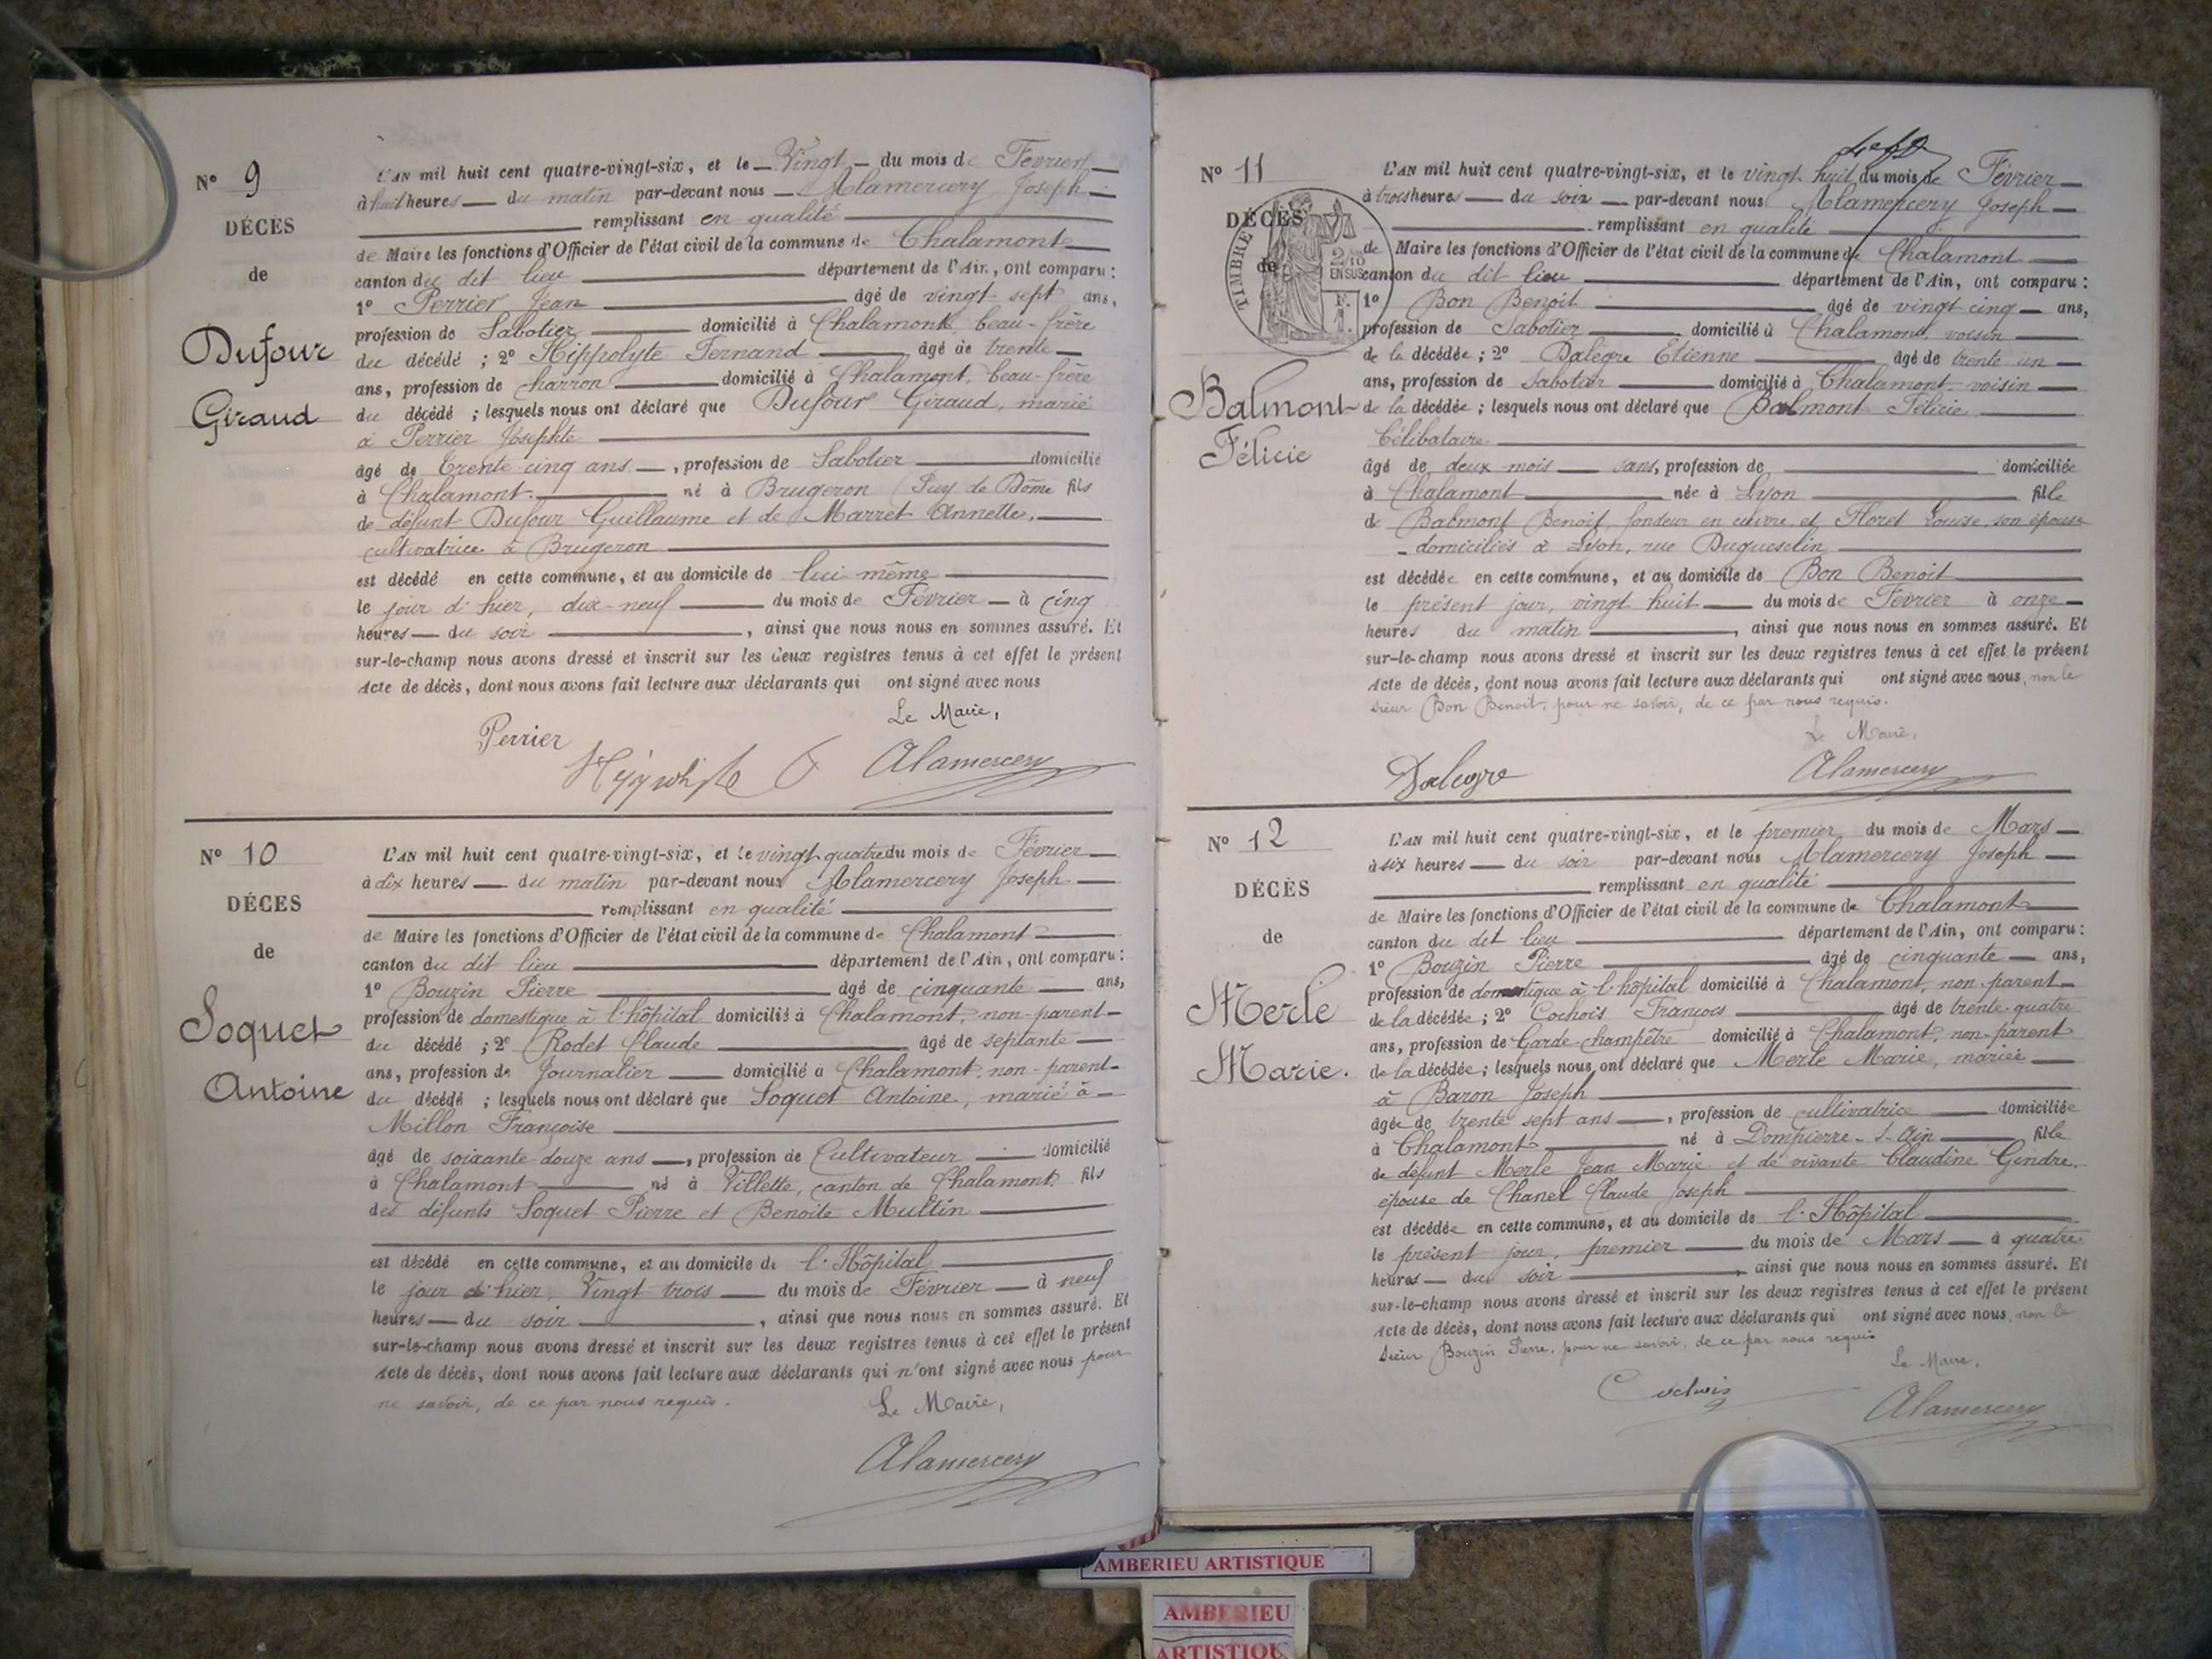 N° 9
DÉCÈS
de
Dufour
Giraud
L'AN mil huit cent quatre-vingt-six, et le Vingt du mois de Février
à huit heures du matin par-devant nous Alamercery Joseph
remplissant en qualité
de Maire les fonctions d'Officier de l'état civil de la commune de Chalamont
canton du dit lieu département de l'Ain, ont comparu :
1° Perrier Jean âgé de vingt sept ans,
profession de Sabotier domicilié à Chalamont, beau-frère
du décédé ; 2° Hippolyte Fernand âgé de trente
ans, profession de charron domicilié à Chalamont, beau-frère
du décédé ; lesquels nous ont déclaré que Dufour Giraud, marié
à Perrier Josephte
âgé de trente cinq ans, profession de Sabotier domicilié
à Chalamont né à Brugeron (Puy de Dôme fils
de défunt Dufour Guillaume et de Marret Annette,
cultivatrice à Brugeron
est décédé en cette commune, et au domicile de lui même
le jour d'hier, dix-neuf du mois de Février à cinq
heures du soir, ainsi que nous nous en sommes assuré. Et
sur-le-champ nous avons dressé et inscrit sur les deux registres tenus à cet effet le présent
acte de décès, dont nous avons fait lecture aux déclarants qui ont signé avec nous
Le Maire,
Perrier
Hippolyte F
Alamercery
N° 10
DÉCES
de
Soquet
Antoine
L'AN mil huit cent quatre-vingt-six, et le vingt quatre du mois de Février
à dix heures du matin par-devant nous Alamercery Joseph
remplissant en qualité
de Maire les fonctions d'Officier de l'état civil de la commune de Chalamont
canton du dit lieu département de l'Ain, ont comparu :
1° Bouzin Pierre âgé de cinquante ans,
profession de domestique à l'hôpital domicilié à Chalamont, non-parent
du décédé ; 2° Rodet Claude âgé de septante
ans, profession de Journalier domicilié à Chalamont, non-parent
du décédé ; lesquels nous ont déclaré que Soquet Antoine, marié à
Millon Françoise
âgé de soixante-douze ans, profession de Cultivateur domicilié
à Chalamont né à Villette, canton de Chalamont, fils
des défunts Soquet Pierre et Benoîte Multin
est décédé en cette commune, et au domicile de l'Hôpital
le jour d'hier, Vingt trois du mois de Février à neuf
heures du soir, ainsi que nous nous en sommes assuré. Et
sur-le-champ nous avons dressé et inscrit sur les deux registres tenus à cet effet le présent
acte de décès, dont nous avons fait lecture aux déclarants qui n'ont signé avec nous pour
ne savoir, de ce par nous requis.
Le Maire,
Alamercery
N° 11
DÉCÈS
de
TIMBRE
2/10
EN SUS
Balmont
Félicie
L'AN mil huit cent quatre-vingt-six, et le vingt huit du mois de Février
à trois heures du soir par-devant nous Alamercery Joseph
remplissant en qualité
de Maire les fonctions d'Officier de l'état civil de la commune de Chalamont
canton du dit lieu département de l'Ain, ont comparu :
1° Bon Benoit âgé de vingt cinq ans,
profession de Sabotier domicilié à Chalamont, voisin
de la décédée ; 2° Dalègre Etienne âgé de trente un
ans, profession de Sabotier domicilié à Chalamont, voisin
de la décédée ; lesquels nous ont déclaré que Balmont Félicie
Célibataire
âgé de deux mois sans, profession de domiciliée
à Chalamont née à Lyon fille
de Balmont Benoit, fondeur en cuivre, et Floret Louise, son épouse
domiciliés à Lyon, rue Duguesclin
est décédée en cette commune, et au domicile de Bon Benoit
le présent jour, vingt huit du mois de Février à onze
heures du matin, ainsi que nous nous en sommes assuré. Et
sur-le-champ nous avons dressé et inscrit sur les deux registres tenus à cet effet le présent
acte de décès, dont nous avons fait lecture aux déclarants qui ont signé avec nous, non le
sieur Bon Benoit, pour ne savoir, de ce par nous requis.
Le Maire,
Dalegre
Alamercery
N° 12
DÉCÈS
de
Merle
Marie.
L'AN mil huit cent quatre-vingt-six, et le premier du mois de Mars
à six heures du soir par-devant nous Alamercery Joseph
remplissant en qualité
de Maire les fonctions d'Officier de l'état civil de la commune de Chalamont
canton du dit lieu département de l'Ain, ont comparu :
1° Bouzin Pierre âgé de cinquante ans,
profession de domestique à l'hôpital domicilié à Chalamont, non parent
de la décédée ; 2° Cochois François âgé de trente-quatre
ans, profession de Garde-champêtre domicilié à Chalamont, non-parent
de la décédée ; lesquels nous ont déclaré que Merle Marie, mariée
à Baron Joseph
âgée de trente sept ans, profession de cultivatrice domiciliée
à Chalamont né à Dompierre-s-Ain fille
de défunt Merle Jean Marie et de vivante Claudine Gindre,
épouse de Chanel Claude Joseph
est décédée en cette commune, et au domicile de l'Hôpital
le présent jour, premier du mois de Mars à quatre
heures du soir, ainsi que nous nous en sommes assuré. Et
sur-le-champ nous avons dressé et inscrit sur les deux registres tenus à cet effet le présent
acte de décès, dont nous avons fait lecture aux déclarants qui ont signé avec nous, non le
sieur Bouzin Pierre, pour ne savoir, de ce par nous requis
Le Maire,
Cochois
Alamercery
AMBERIEU ARTISTIQUE
AMBERIEU
ARTISTIQU